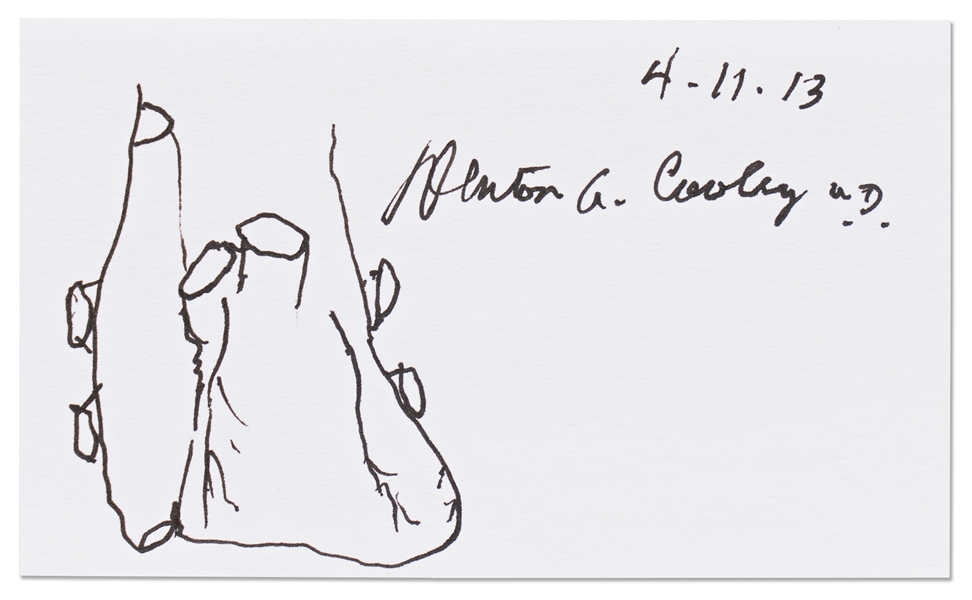 4-11.13
Denton A. Cooley M.D.